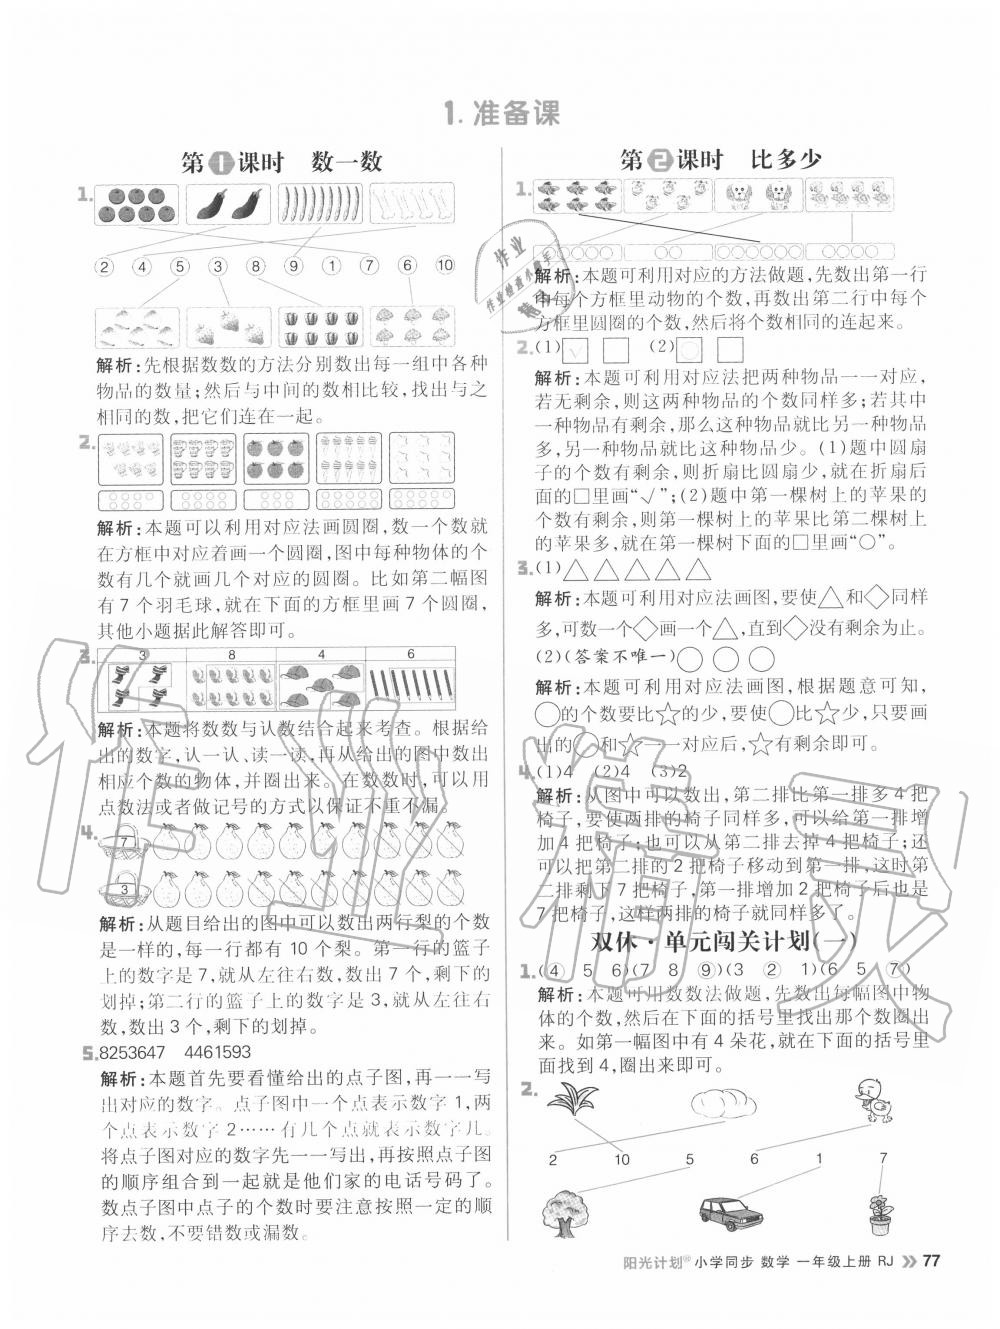 1. 准备课
第1课时 数一数
1.
2 4 5 3 8 9 1 7 6 10
解析:先根据数数的方法分别数出每一组中各种
物品的数量;然后与中间的数相比较,找出与之
相同的数,把它们连在一起。
2.
解析:本题可以利用对应法画圆圈,数一个数就
在方框中对应着画一个圆圈,图中每种物体的个
数有几个就画几个对应的圆圈。比如第二幅图
有7个羽毛球,就在下面的方框里画7个圆圈,
其他小题据此解答即可。
3. 3 8 4 6
解析:本题将数数与认数结合起来考查。根据给
出的数字,认一认、读一读,再从给出的图中数出
相应个数的物体,并圈出来。在数数时,可以用
点数法或者做记号的方式以保证不重不漏。
4. 7
3
解析:从题目给出的图中可以数出两行梨的个数
是一样的,每一行都有10个梨。第一行的篮子
上的数字是7,就从左往右数,数出7个,剩下的
划掉;第二行的篮子上的数字是3,就从左往右
数,数出3个,剩下的划掉。
5. 8253647 4461593
解析:本题首先要看懂给出的点子图,再一一写
出对应的数字。点子图中一个点表示数字1,两
个点表示数字2……有几个点就表示数字几。
将点子图对应的数字先一一写出,再按照点子图
的顺序组合到一起就是他们家的电话号码了。
数点子图中点子的个数时要注意按照一定的顺
序去数,不要错数或漏数。
第2课时 比多少
1.
解析:本题可利用对应的方法做题,先数出第一行
中每个方框里动物的个数,再数出第二行中每个
方框里圆圈的个数,然后将个数相同的连起来。
2.(1)☑ □ (2)○ □
解析:本题可利用对应法把两种物品一一对应,
若无剩余,则这两种物品的个数同样多;若其中
一种物品有剩余,那么这种物品就比另一种物品
多,另一种物品就比这种物品少。(1)题中圆扇
子的个数有剩余,则折扇比圆扇少,就在折扇后
面的□里画“√”;(2)题中第一棵树上的苹果的
个数有剩余,则第一棵树上的苹果比第二棵树上
的苹果多,就在第一棵树下面的□里画“○”。
3.(1)△△△△△
解析:本题可利用对应法画图,要使△和◇同样
多,可数一个◇画一个△,直到◇没有剩余为止。
(2)(答案不唯一)○ ○ ○
解析:本题可利用对应法画图,根据题意可知,
○的个数要比☆的少,要使○比☆少,只要画
出的○和☆一一对应后,☆有剩余即可。
4.(1)4 (2)4 (3)2
解析:从图中可以数出,第二排比第一排多4把
椅子,要使两排的椅子同样多,可以给第一排增
加4把椅子;也可以从第二排去掉4把椅子;还
可以把第二排的2把椅子移动到第一排,这时第
二排剩下7把椅子,第一排增加2把椅子后也是
7把椅子,这样两排的椅子就同样多了。
双休·单元闯关计划(一)
1.(④ 5 6)(7 8 ⑨)(3 ② 1)(6 5 ⑦)
解析:本题可用数数法做题,先数出每幅图中物
体的个数,然后在下面的括号里找出那个数圈出
来。如第一幅图中有4朵花,就在下面的括号里
面找到4,圈出来即可。
2.
2 10 5 6 1 7
阳光计划 小学同步 数学 一年级上册 RJ 77
作业
作业检查小帮手
精灵
作业精灵